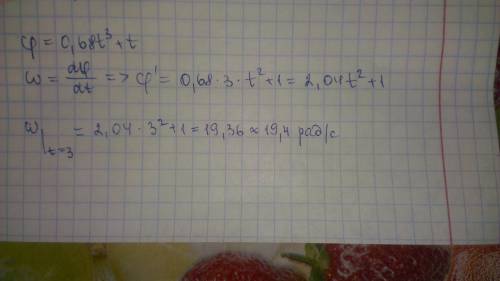 φ = 0,68t³ + t
ω = dφ/dt => φ' = 0,68·3·t² + 1 = 2,04t² + 1
ω|t=3 = 2,04·3² + 1 = 19,36 ≈ 19,4 рад/с